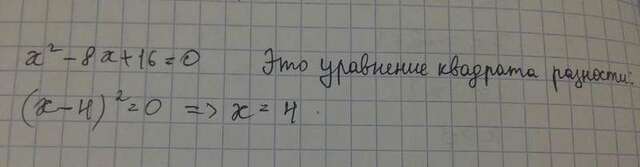 x² - 8x + 16 = 0 Это уравнение квадрата разности.
(x - 4)² = 0 => x = 4.